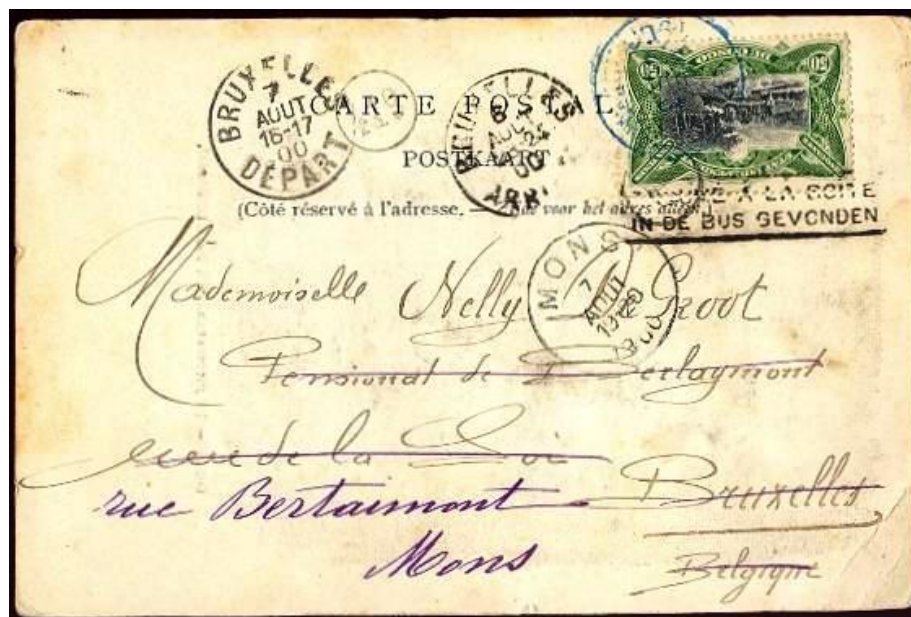 BRUXELLES
7
AOUT
16-17
00
DÉPART
BRUXELLES
AOUT
00
CARTE POSTALE
POSTKAART
(Côté réservé à l'adresse. — voor het adres
À LA BOITE
IN DE BUS GEVONDEN
MONS
7
AOUT
1900
Mademoiselle Nelly De Groot
Pensionat de Berlaymont
rue de la Loi
rue Bertaimont Bruxelles
Mons Belgique